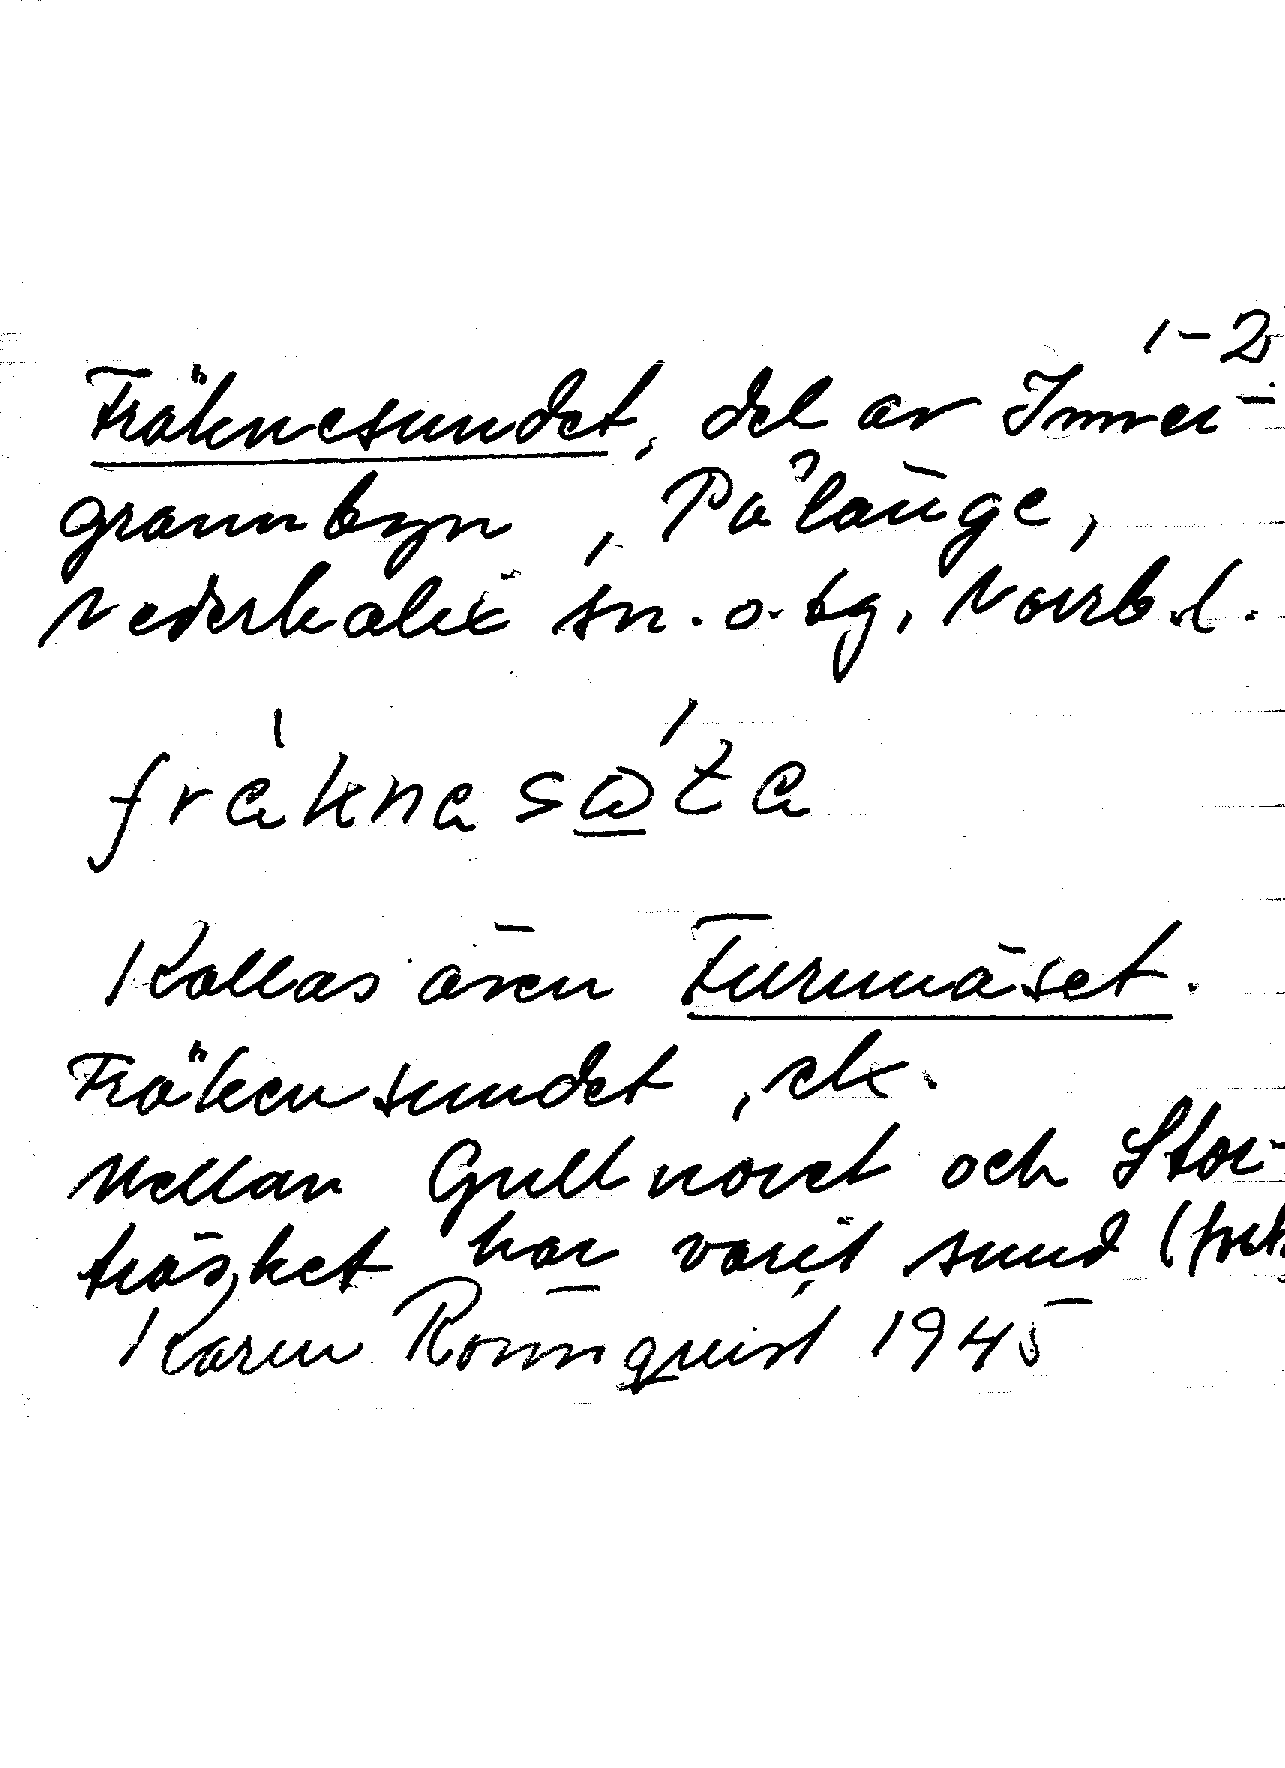 1-2
Fräknesundet, del av Inner-
grannbyn, Pålänge,
Nederkalix sn. o. tg, Norrb.l.
Kallas även Furunäset.
Fräkensundet, ek.
Mellan Gullnöret och Stor-
träsket har varit sund (
Karin Rönnquist 1945